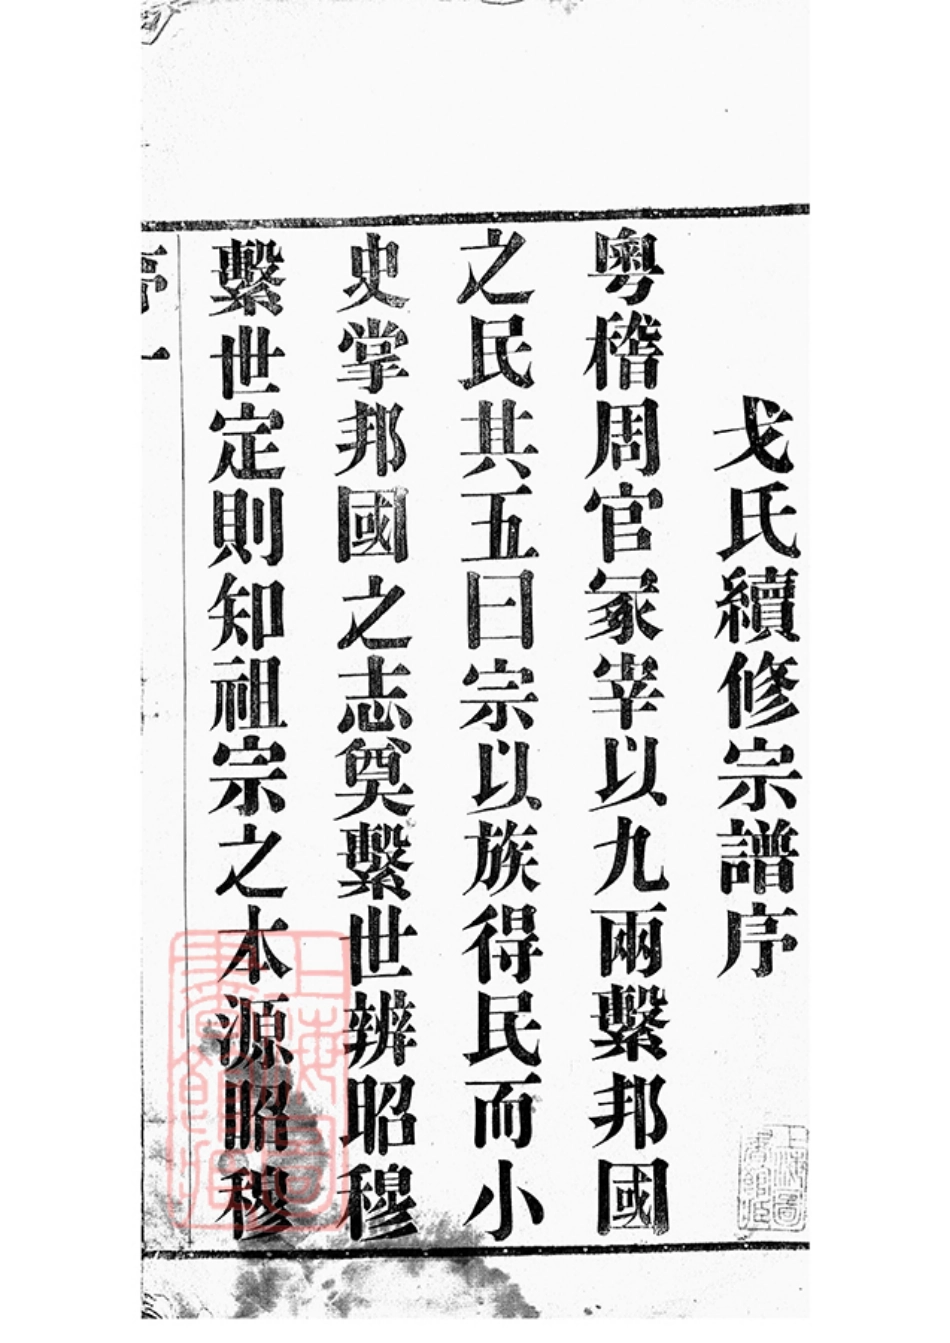 戈氏續修宗譜序
粵稽周官冢宰以九兩繫邦國
之民共五曰宗以族得民而小
史掌邦國之志奠繫世辨昭穆
繫世定則知祖宗之本源昭穆
序一
上海圖書館藏